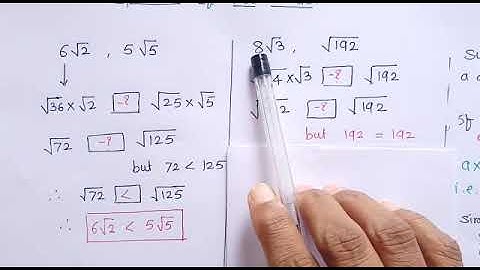 6√2 , 5√5
↓
√36 × √2 -? √25 × √5
√72 -? √125
but 72 < 125
∴ √72 < √125
∴ 6√2 < 5√5
8√3 , √192
4 × √3 -? √192
2 -? √192
but 192 = 192
a
If
i.e.